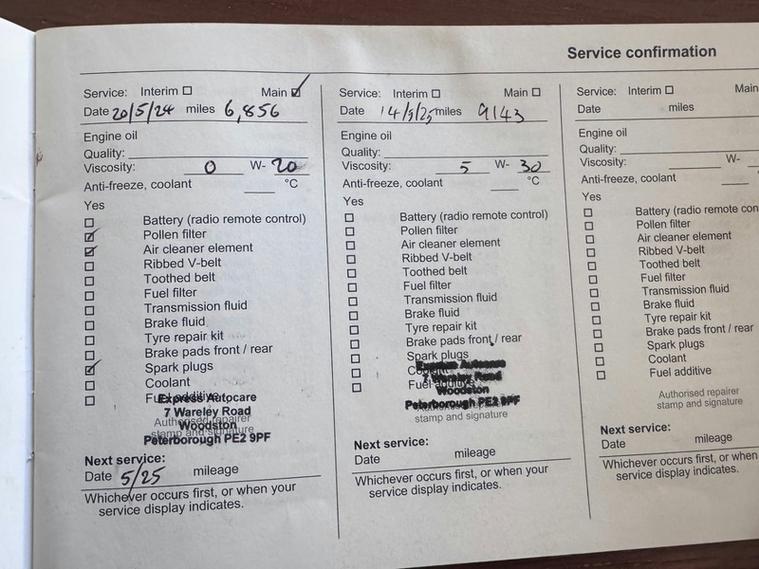 Service confirmation
Service: Interim Main
Date 20/5/24 miles 6,856
Engine oil
Quality:
Viscosity: 0 W- 20
Anti-freeze, coolant °C
Yes
Battery (radio remote control)
Pollen filter
Air cleaner element
Ribbed V-belt
Toothed belt
Fuel filter
Transmission fluid
Brake fluid
Tyre repair kit
Brake pads front / rear
Spark plugs
Coolant
Fuel additive
Express Autocare
7 Wareley Road
Authorised repairer
Woodston
stamp and signature
Peterborough PE2 9PF
Next service:
Date 5/25 mileage
Whichever occurs first, or when your
service display indicates.
Service: Interim Main
Date 14/5/25 miles 9143
Engine oil
Quality:
Viscosity: 5 W- 30
Anti-freeze, coolant °C
Yes
Battery (radio remote control)
Pollen filter
Air cleaner element
Ribbed V-belt
Toothed belt
Fuel filter
Transmission fluid
Brake fluid
Tyre repair kit
Brake pads front / rear
Spark plugs
Express Autocare
Coolant
7 Wareley Road
Fuel additive
Woodston
Peterborough PE2 9PF
stamp and signature
Next service:
Date mileage
Whichever occurs first, or when your
service display indicates.
Service: Interim Main
Date miles
Engine oil
Quality:
Viscosity: W-
Anti-freeze, coolant
Yes
Battery (radio remote con
Pollen filter
Air cleaner element
Ribbed V-belt
Toothed belt
Fuel filter
Transmission fluid
Brake fluid
Tyre repair kit
Brake pads front / rear
Spark plugs
Coolant
Fuel additive
Authorised repairer
stamp and signature
Next service:
Date mileage
Whichever occurs first, or when
service display indicates.